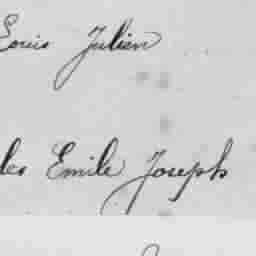 Louis Julien
les Emile Joseph